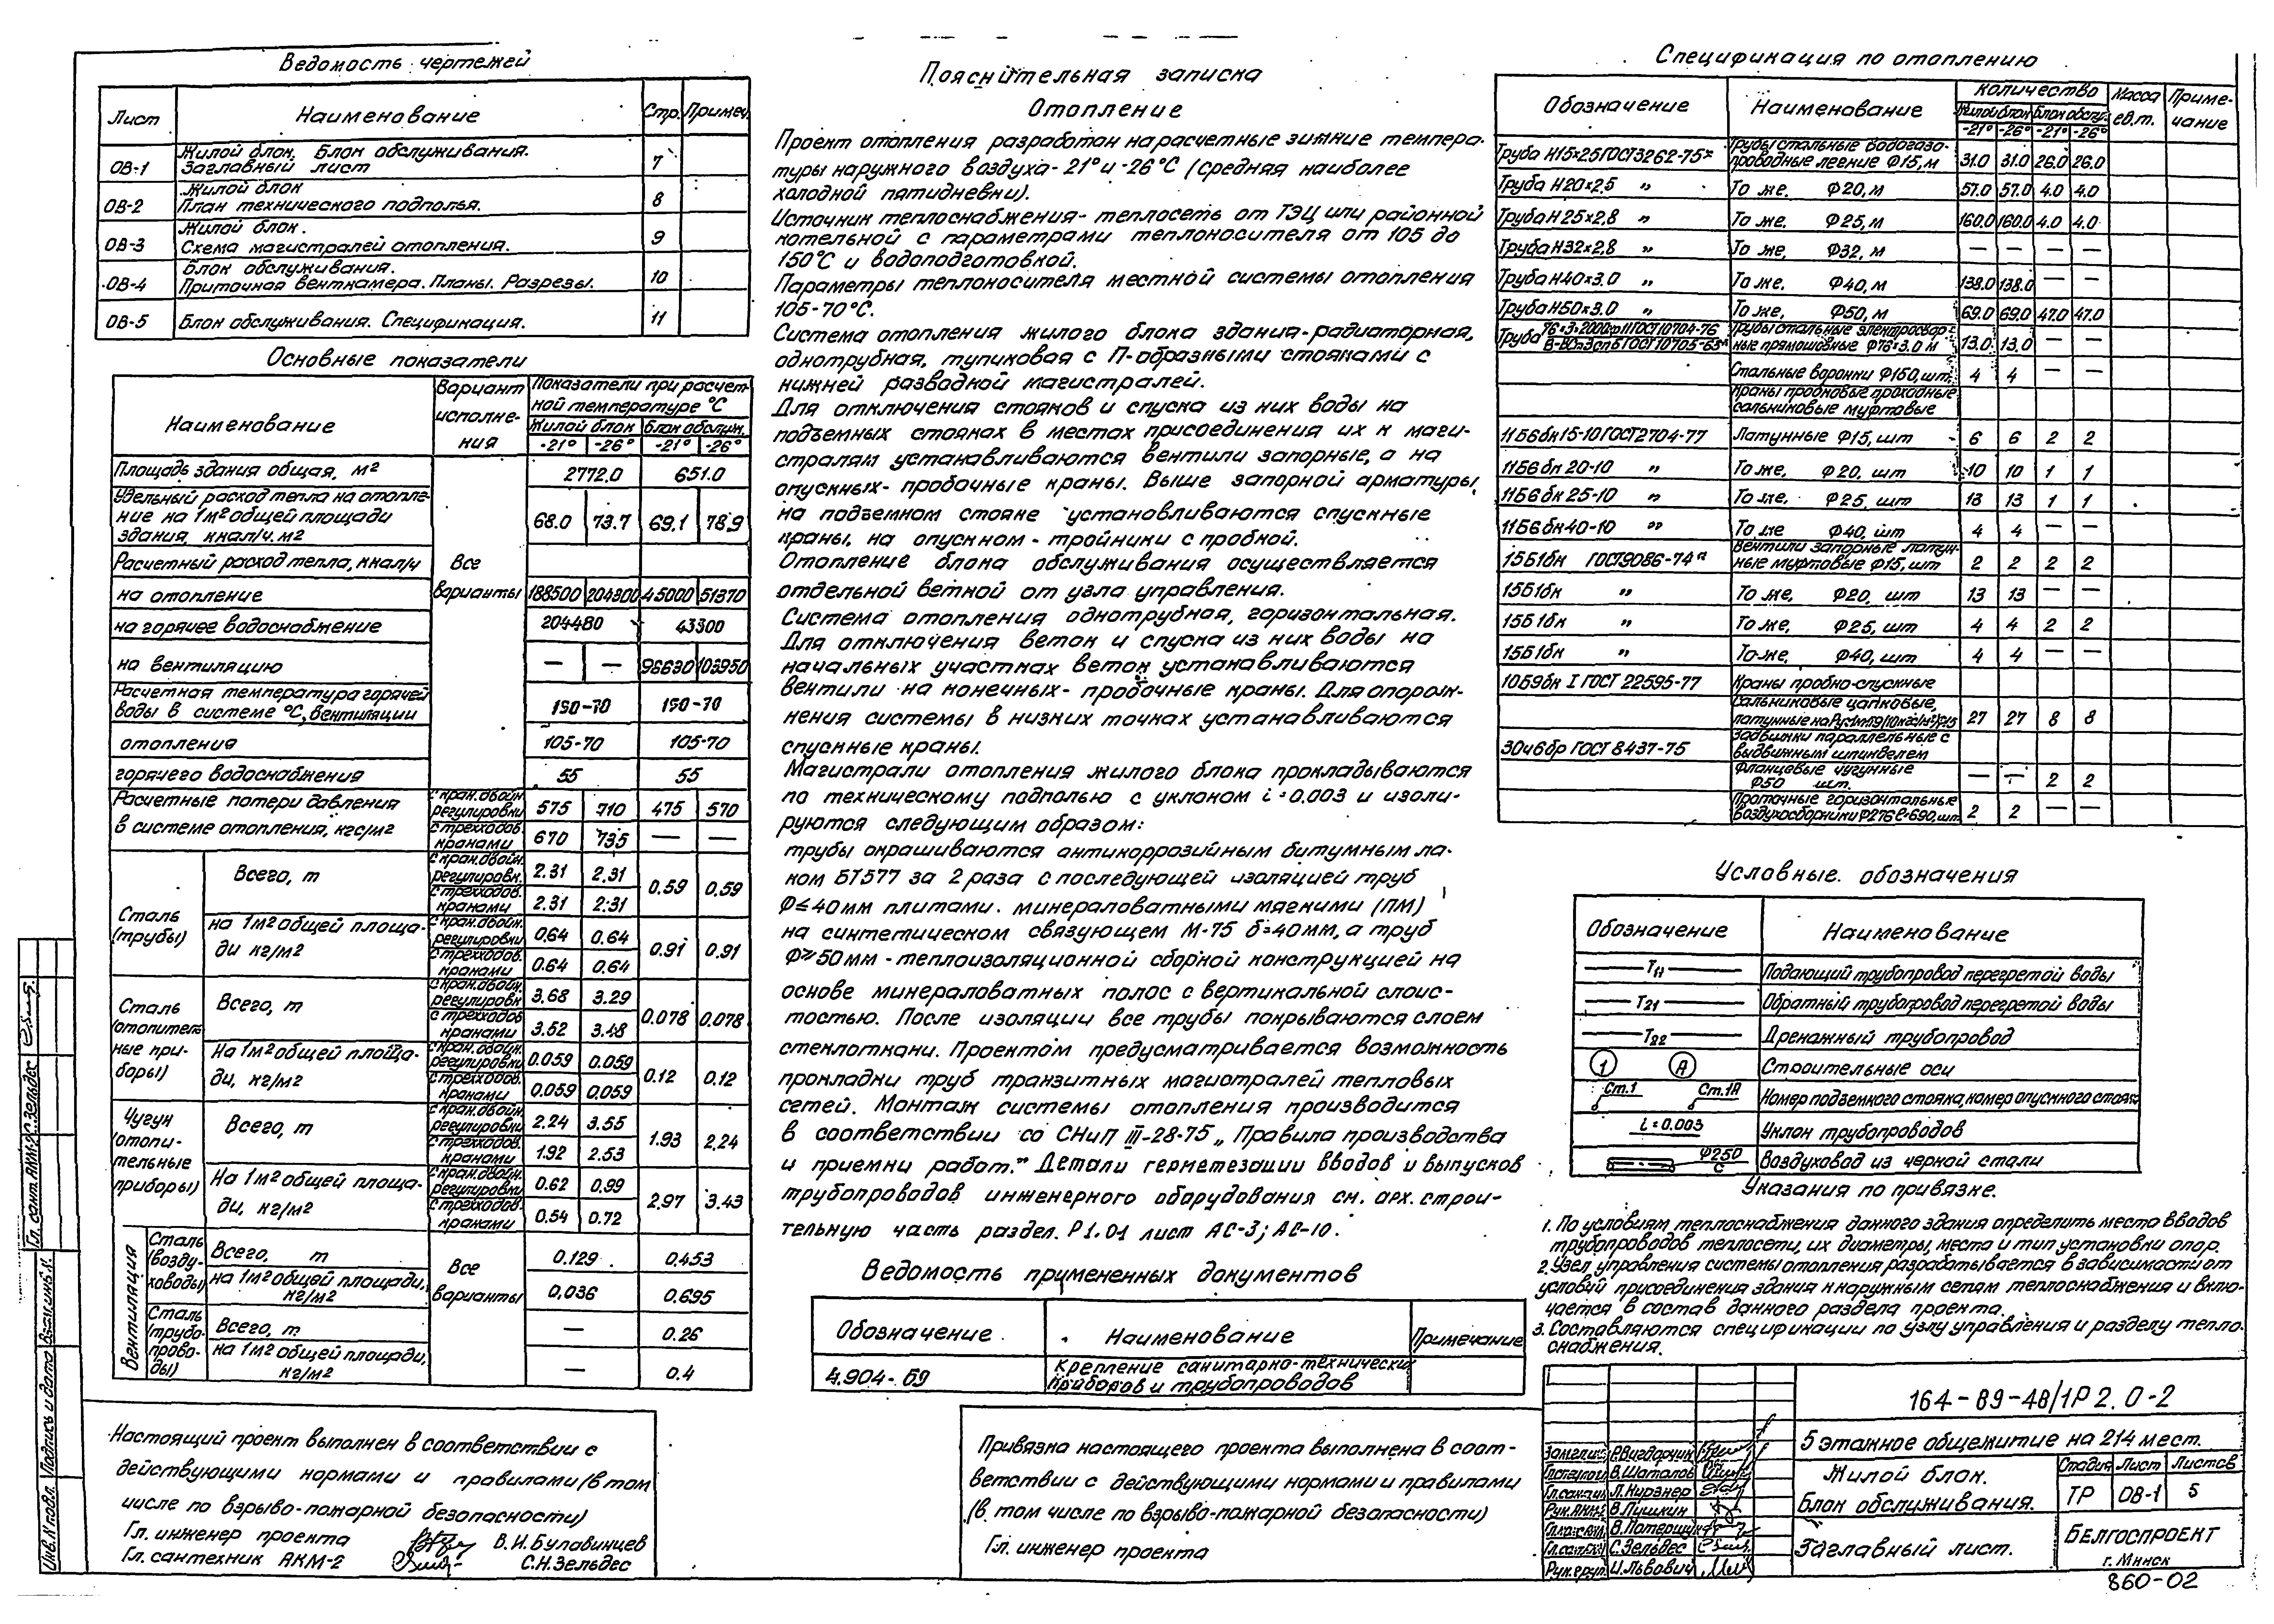 Ведомость чертежей
Лист Наименование Стр. Примеч.
ОВ-1 Жилой блок. Блок обслуживания. Заглавный лист 7
ОВ-2 Жилой блок План технического подполья. 8
ОВ-3 Жилой блок. Схема магистралей отопления. 9
ОВ-4 Блок обслуживания. Приточная венткамера. Планы. Разрезы. 10
ОВ-5 Блок обслуживания. Спецификация. 11
Основные показатели
Наименование Вариант исполнения Показатели при расчетной температуре °С
Жилой блок Блок обслуж.
-21° -26° -21° -26°
Площадь здания общая, м2 2772.0 651.0
Удельный расход тепла на отопление на 1м2 общей площади здания, ккал/ч.м2 68.0 73.7 69.1 78.9
Расчетный расход тепла, ккал/ч Все варианты
на отопление 188500 204300 45000 51370
на горячее водоснабжение 204480 43300
на вентиляцию — — 96630 103950
Расчетная температура горячей воды в системе °С, вентиляции 150-70 150-70
отопления 105-70 105-70
горячего водоснабжения 55 55
Расчетные потери давления в системе отопления, кгс/м2
с кран. двойн. регулировки 575 710 475 570
с трехходов. кранами 670 735 — —
Сталь (трубы)
Всего, т
с кран. двойн. регулировк. 2.31 2.31 0.59 0.59
с трехходов. кранами 2.31 2.31
на 1м2 общей площади кг/м2
с кран. двойн. регулировки 0.64 0.64 0.91 0.91
с трехходов. кранами 0.64 0.64
Сталь (отопительные приборы)
Всего, т
с кран. двойн. регулировк. 3.68 3.29 0.078 0.078
с трехходов. кранами 3.52 3.48
На 1м2 общей площади, кг/м2
с кран. двойн. регулировки 0.059 0.059 0.12 0.12
с трехходов. кранами 0.059 0.059
Чугун (отопительные приборы)
Всего, т
с кран. двойн. регулировки 2.24 3.55 1.93 2.24
с трехходов. кранами 1.92 2.53
На 1м2 общей площади, кг/м2
с кран. двойн. регулировки 0.62 0.99 2.97 3.43
с трехходов. кранами 0.54 0.72
Вентиляция
Сталь (воздуховоды) Всего, т Все варианты 0.129 0.453
на 1м2 общей площади, кг/м2 0.036 0.695
Сталь (трубопроводы) Всего, т — 0.26
на 1м2 общей площади, кг/м2 — 0.4
Настоящий проект выполнен в соответствии с
действующими нормами и правилами (в том
числе по взрыво-пожарной безопасности)
Гл. инженер проекта В.И. Булавинцев
Гл. сантехник АКМ-2 С.Н. Зельдес
Пояснительная записка
Отопление
Проект отопления разработан на расчетные зимние темпера-
туры наружного воздуха -21° и -26°С (средняя наиболее
холодной пятидневки).
Источник теплоснабжения - теплосеть от ТЭЦ или районной
котельной с параметрами теплоносителя от 105 до
150°С и водоподготовкой.
Параметры теплоносителя местной системы отопления
105-70°С.
Система отопления жилого блока здания-радиаторная,
однотрубная, тупиковая с П-образными стояками с
нижней разводкой магистралей.
Для отключения стояков и спуска из них воды на
подъемных стояках в местах присоединения их к маги-
стралям устанавливаются вентили запорные, а на
опускных - пробочные краны. Выше запорной арматуры,
на подъемном стояке устанавливаются спускные
краны, на опускном - тройники с пробкой.
Отопление блока обслуживания осуществляется
отдельной веткой от узла управления.
Система отопления однотрубная, горизонтальная.
Для отключения веток и спуска из них воды на
начальных участках веток устанавливаются
вентили на конечных - пробочные краны. Для опорож-
нения системы в низких точках устанавливаются
спускные краны.
Магистрали отопления жилого блока прокладываются
по техническому подполью с уклоном i=0.003 и изоли-
руются следующим образом:
трубы окрашиваются антикоррозийным битумным ла-
ком БТ577 за 2 раза с последующей изоляцией труб
Ф≤40мм плитами минераловатными мягкими (ПМ)
на синтетическом связующем М-75 δ=40мм, а труб
Ф≥50мм - теплоизоляционной сборной конструкцией на
основе минераловатных полос с вертикальной слоис-
тостью. После изоляции все трубы покрываются слоем
стеклоткани. Проектом предусматривается возможность
прокладки труб транзитных магистралей тепловых
сетей. Монтаж системы отопления производится
в соответствии со СНиП III-28-75 „Правила производства
и приемки работ." Детали герметезации вводов и выпусков
трубопроводов инженерного оборудования см. арх. строи-
тельную часть раздел. Р1.01 лист АС-3; АС-10.
Ведомость примененных документов
Обозначение Наименование Примечание
4.904-69 Крепление санитарно-технических приборов и трубопроводов
Привязка настоящего проекта выполнена в соот-
ветствии с действующими нормами и правилами
(в том числе по взрыво-пожарной безопасности)
Гл. инженер проекта
Спецификация по отоплению
Обозначение Наименование Количество Масса ед, т. Примечание
Жилой блок Блок обслу.
-21° -26° -21° -26°
Труба Н15×2.5 ГОСТ3262-75* Трубы стальные водогазопроводные легкие Ф15, м 31.0 31.0 26.0 26.0
Труба Н20×2.5 „ То же, Ф20, м 57.0 57.0 4.0 4.0
Труба Н25×2.8 „ То же, Ф25, м 160.0 160.0 4.0 4.0
Труба Н32×2.8 „ То же, Ф32, м — — — —
Труба Н40×3.0 „ То же, Ф40, м 138.0 138.0 — —
Труба Н50×3.0 „ То же, Ф50, м 69.0 69.0 47.0 47.0
Труба 76×3×2000кр11ГОСТ10704-76 В-ВСт3сп5ГОСТ10705-63* Трубы стальные электросварные прямошовные Ф76×3.0 м 13.0 13.0 — —
Стальные воронки Ф150, шт. 4 4 — —
Краны пробковые проходные сальниковые муфтовые
11Б6бк15-10ГОСТ2704-77 Латунные Ф15, шт 6 6 2 2
11Б6бк 20-10 „ То же, Ф20, шт 10 10 1 1
11Б6бк 25-10 „ То же, Ф25, шт 13 13 1 1
11Б6бк40-10 „ То же Ф40, шт 4 4 — —
15Б1бк ГОСТ9086-74* Вентили запорные латунные муфтовые Ф15, шт 2 2 2 2
15Б1бк „ То же, Ф20, шт 13 13 — —
15Б1бк „ То же, Ф25, шт 4 4 2 2
15Б1бк „ То же, Ф40, шт 4 4 — —
10Б9бк I ГОСТ 22595-77 Краны пробно-спускные
сальниковые цапковые, латунные 27 27 8 8
30ч6бр ГОСТ 8437-75 Задвижки параллельные с выдвижным шпинделем
фланцевые чугунные Ф50 шт. — — 2 2
Проточные горизонтальные воздухосборники Ф276 ℓ=690, шт 2 2 — —
Условные обозначения
Обозначение Наименование
Т11 Подающий трубопровод перегретой воды
Т21 Обратный трубопровод перегретой воды
Т22 Дренажный трубопровод
1 А Строительные оси
Ст.1 Ст.1А Номер подъемного стояка, номер опускного стояка
i=0.003 Уклон трубопроводов
Ф250 С Воздуховод из черной стали
Указания по привязке.
1. По условиям теплоснабжения данного здания определить места вводов
трубопроводов теплосети, их диаметры, места и тип установки опор.
2. Узел управления системы отопления разрабатывается в зависимости от
условий присоединения здания к наружным сетям теплоснабжения и вклю-
чается в состав данного раздела проекта.
3. Составляются спецификации по узлу управления и разделу тепло-
снабжения.
164-89-48/1Р 2.0-2
5 этажное общежитие на 214 мест.
Жилой блок.
Блок обслуживания.
Стадия Лист Листов
ТР ОВ-1 5
Заглавный лист.
БЕЛГОСПРОЕКТ
г. Минск
Р. Вигдорчик
В. Шаталов
Л. Кирзнер
Рук. АКМ-2 В. Пушкин
С. Зельдес
Рук. груп. И. Львович
860-02
Гл. сант. АКМ-2 С. Зельдес
Инв. N подл. Подпись и дата Взам. инв. N.